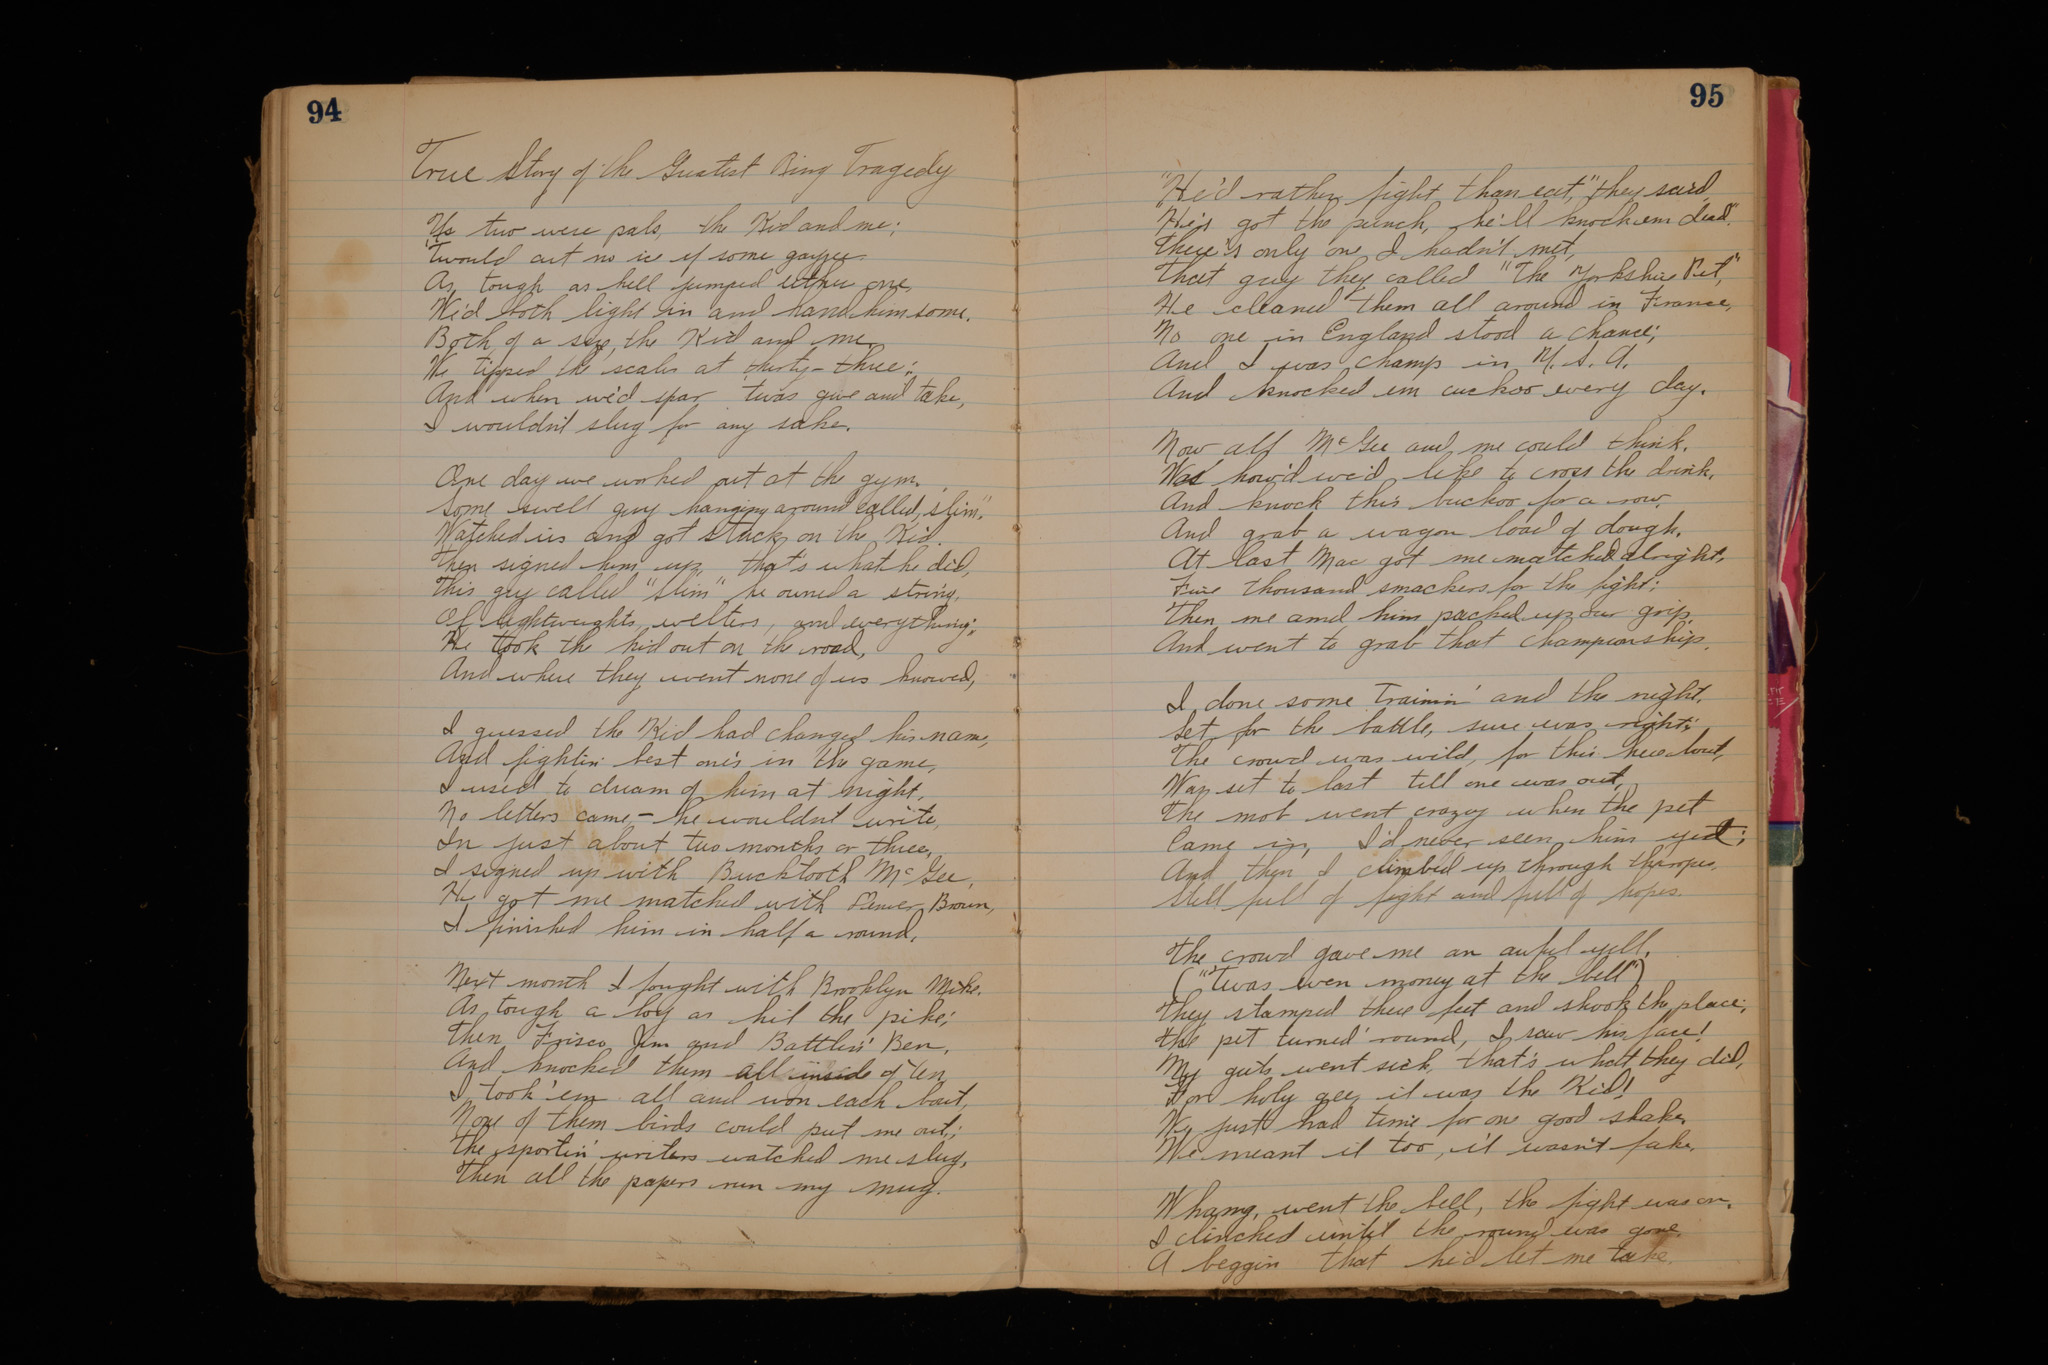 94
True Story of the Greatest Ring Tragedy
Us two were pals, the Kid and me;
'Twould cut no ice if some gayzee
As tough as hell jumped either one,
We'd both light in and hand him some.
Both of a size, the Kid and me.
We tipped the scales at thirty-three;
And when we'd spar 'twas give and take,
I wouldn't slug for any sake.
One day we worked out at the gym.
Some swell guy hanging around called, "Slim".
Watched us and got stuck on the Kid.
Then signed him up, that's what he did,
This guy called "Slim" he owned a string.
Of lightweights, welters, and everything;
He took the kid out on the road,
And where they went none of us knowed,
I guessed the Kid had changed his name,
And fightin' best one's in the game,
I used to dream of him at night.
No letters came,- he wouldn't write,
In just about two months or three,
I signed up with Bucktooth McGee,
He got me matched with Denver Brown,
I finished him in half a round.
Next month I fought with Brooklyn Mike.
As tough a boy as hit the pike;
Then Frisco Jim and Battlin' Ben,
And knocked them all inside of ten
I took 'em all and won each bout,
None of them birds could put me out;
The sportin' writers watched me slug,
Then all the papers run my mug.
95
"He'd rather fight than eat," they said,
He's got the punch, he'll knock em dead".
There's only one I hadn't met,
That guy they called "The Yorkshire Pet,"
He cleaned them all around in France,
No one in England stood a chance;
And I was champ in U. S. A.
And knocked em cuckoo every day.
Now all McGee and me could think.
Was how'd we'd like to cross the drink.
And knock this buckoo for a row.
And grab a wagon load of dough.
At last Mac got me matched alright,
Five thousand smackers for the fight;
Then me and him packed up our grip,
And went to grab that championship.
I done some trainin' and the night.
Set for the battle, sure was right;
The crowd was wild, for this here bout,
Was set to last till one was out,
The mob went crazy when the pet
Came in, I'd never seen him yet;
And then I climbed up through the ropes.
Still full of fight and full of hopes.
The crowd gave me an awful yell,
("'Twas even money at the bell")
They stamped there feet and shook the place;
the pet turned 'round, I saw his face!
My guts went sick, that's what they did,
For holy gee, it was the Kid!
We just had time for one good shake.
We meant it too, it wasn't fake.
Whang, went the bell, the fight was on.
I clinched until the round was gone.
A beggin that he'd let me take.